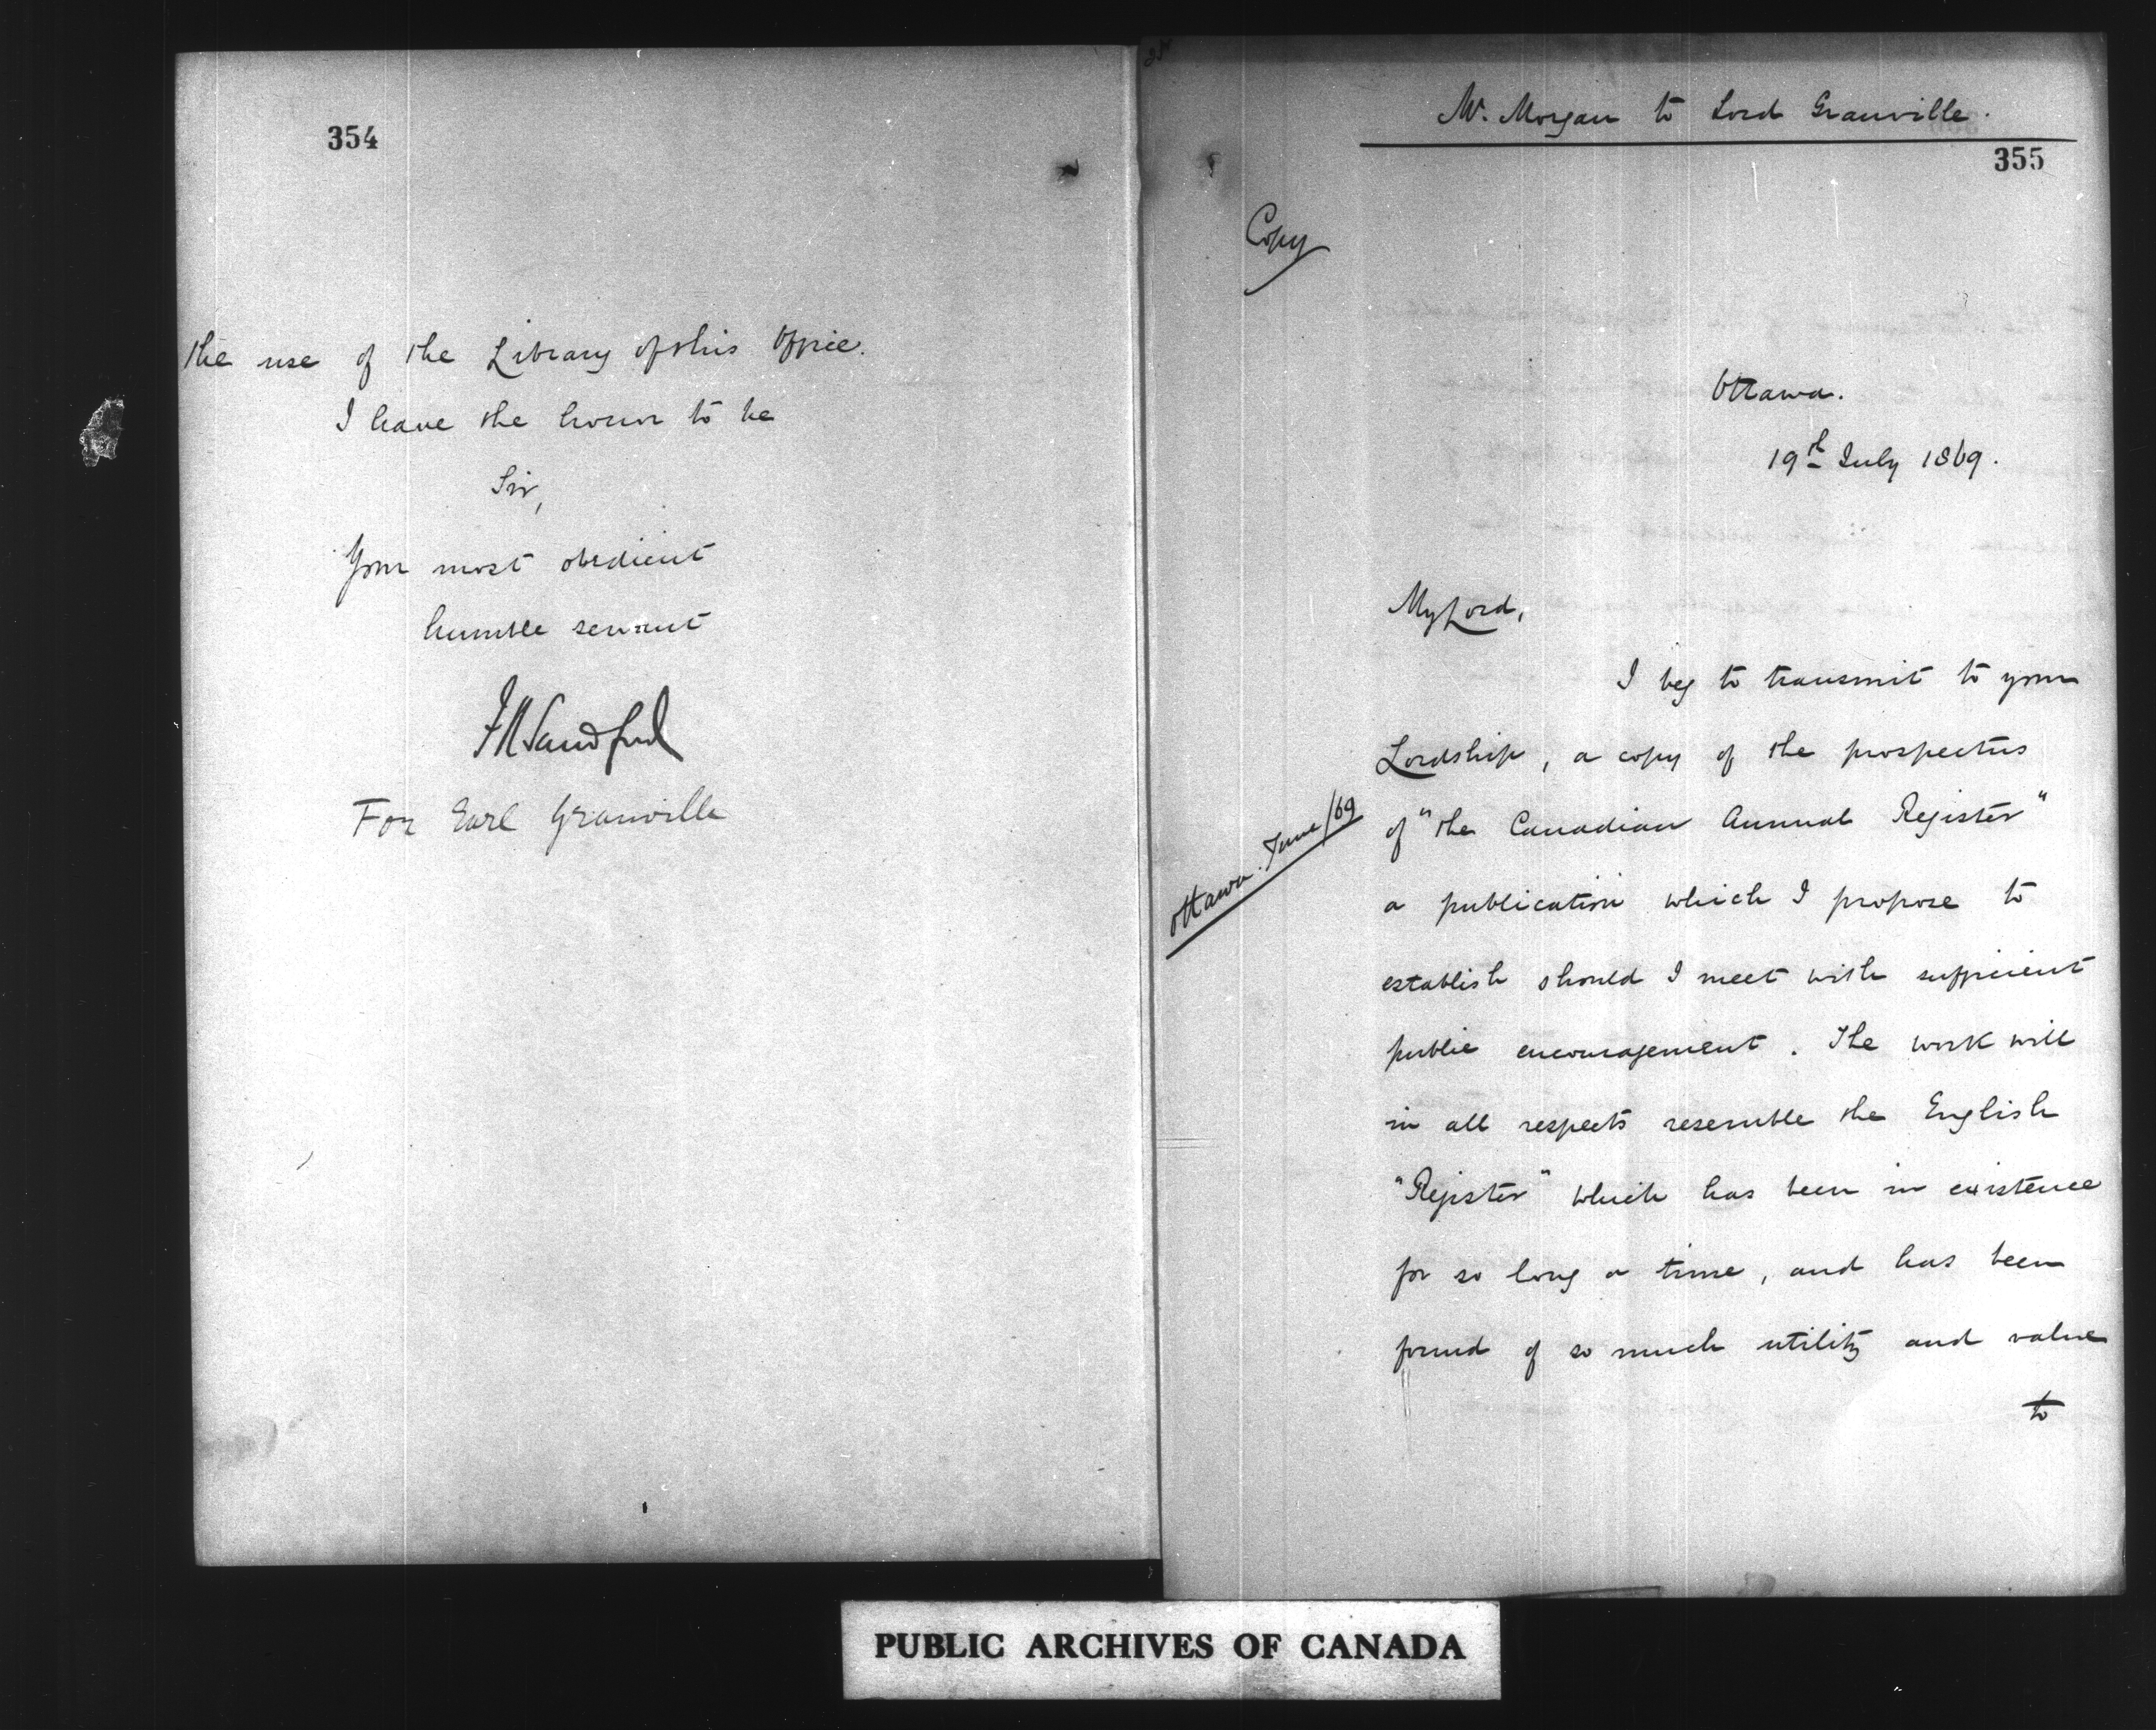 354
the use of the Library of this Office.
I have the honor to be
Sir,
Your most obedient
humble servant
F R Sandford
For Earl Granville
Mr. Morgan to Lord Granville.
355
Copy
Ottawa.
19th July 1869.
My Lord,
I beg to transmit to your
Lordship, a copy of the prospectus
Ottawa. June/69
of "the Canadian Annual Register"
a publication which I propose to
establish should I meet with sufficient
public encouragement. The work will
in all respects resemble the English
"Register" which has been in existence
for so long a time, and has been
found of so much utility and value
to
PUBLIC ARCHIVES OF CANADA